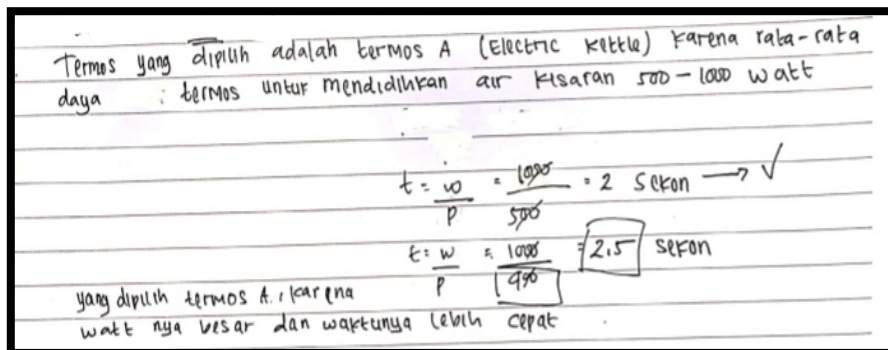 Termos yang dipilih adalah termos A (Electric kettle) karena rata-rata
daya : termos untuk mendidihkan air kisaran 500 - 1000 watt
t = w/P = 1000/500 = 2 sekon → ✓
t = w/P = 1000/400 = 2,5 sekon
yang dipilih termos A, karena
watt nya besar dan waktunya lebih cepat.